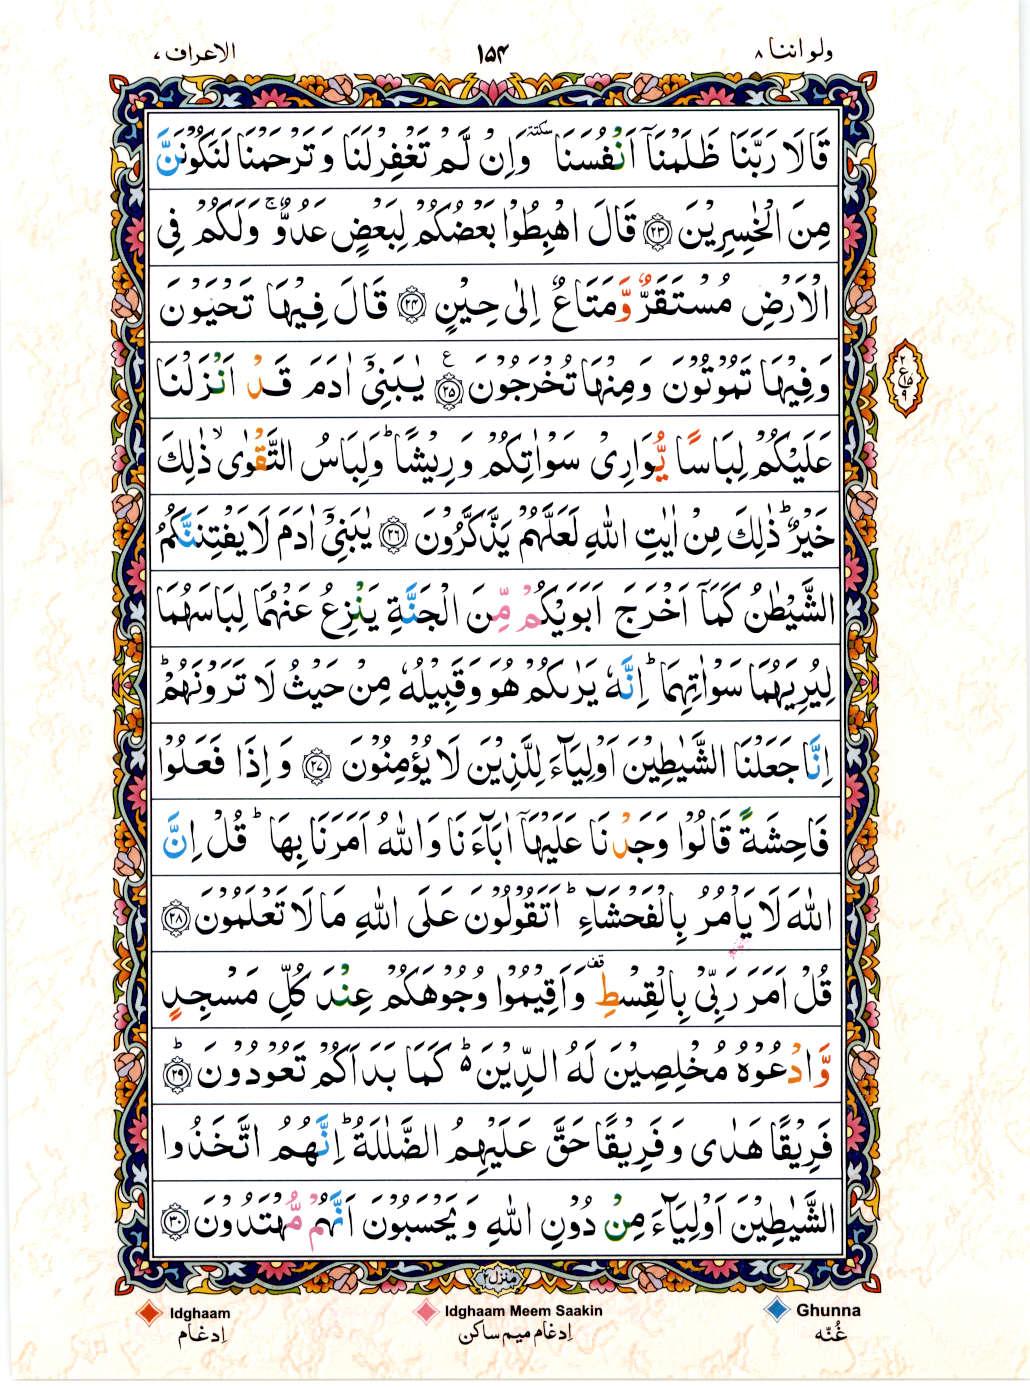 ولو اننا ۸
۱۵۴
الاعراف ۷
قَالَا رَبَّنَا ظَلَمْنَاۤ اَنْفُسَنَا سكتة وَاِنْ لَّمْ تَغْفِرْلَنَا وَ تَرْحَمْنَا لَنَكُوْنَنَّ
مِنَ الْخٰسِرِيْنَ ﴿۲۳﴾ قَالَ اهْبِطُوْا بَعْضُكُمْ لِبَعْضٍ عَدُوٌّ ۚ وَلَكُمْ فِى
الْاَرْضِ مُسْتَقَرٌّ وَّمَتَاعٌ اِلٰى حِيْنٍ ﴿۲۴﴾ قَالَ فِيْهَا تَحْيَوْنَ
وَفِيْهَا تَمُوْتُوْنَ وَمِنْهَا تُخْرَجُوْنَ ﴿۲۵﴾ ع يٰبَنِىْۤ اٰدَمَ قَدْ اَنْزَلْنَا
عَلَيْكُمْ لِبَاسًا يُّوَارِىْ سَوْاٰتِكُمْ وَرِيْشًا ؕ وَلِبَاسُ التَّقْوٰى ۙ ذٰلِكَ
خَيْرٌ ؕ ذٰلِكَ مِنْ اٰيٰتِ اللّٰهِ لَعَلَّهُمْ يَذَّكَّرُوْنَ ﴿۲۶﴾ يٰبَنِىْۤ اٰدَمَ لَا يَفْتِنَنَّكُمُ
الشَّيْطٰنُ كَمَاۤ اَخْرَجَ اَبَوَيْكُمْ مِّنَ الْجَنَّةِ يَنْزِعُ عَنْهُمَا لِبَاسَهُمَا
لِيُرِيَهُمَا سَوْاٰتِهِمَا ؕ اِنَّهٗ يَرٰىكُمْ هُوَ وَقَبِيْلُهٗ مِنْ حَيْثُ لَا تَرَوْنَهُمْ ؕ
اِنَّا جَعَلْنَا الشَّيٰطِيْنَ اَوْلِيَآءَ لِلَّذِيْنَ لَا يُؤْمِنُوْنَ ﴿۲۷﴾ وَاِذَا فَعَلُوْا
فَاحِشَةً قَالُوْا وَجَدْنَا عَلَيْهَاۤ اٰبَآءَنَا وَاللّٰهُ اَمَرَنَا بِهَا ؕ قُلْ اِنَّ
اللّٰهَ لَا يَاْمُرُ بِالْفَحْشَآءِ ؕ اَتَقُوْلُوْنَ عَلَى اللّٰهِ مَا لَا تَعْلَمُوْنَ ﴿۲۸﴾
قُلْ اَمَرَ رَبِّىْ بِالْقِسْطِ قف وَاَقِيْمُوْا وُجُوْهَكُمْ عِنْدَ كُلِّ مَسْجِدٍ
وَّادْعُوْهُ مُخْلِصِيْنَ لَهُ الدِّيْنَ ؕ كَمَا بَدَاَكُمْ تَعُوْدُوْنَ ؕ ﴿۲۹﴾
فَرِيْقًا هَدٰى وَفَرِيْقًا حَقَّ عَلَيْهِمُ الضَّلٰلَةُ ؕ اِنَّهُمُ اتَّخَذُوا
الشَّيٰطِيْنَ اَوْلِيَآءَ مِنْ دُوْنِ اللّٰهِ وَيَحْسَبُوْنَ اَنَّهُمْ مُّهْتَدُوْنَ ﴿۳۰﴾
۲
ع ۱۵
۹
منزل ۲
Idghaam
Idghaam Meem Saakin
Ghunna
اِدغام
اِدغام میم ساکن
غُنّه